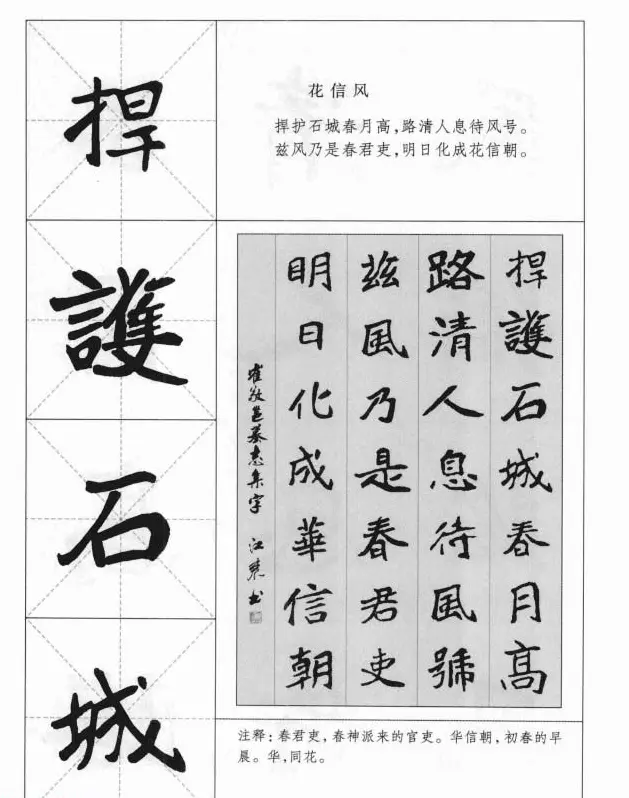 捍
護
石
城
花信风
捍护石城春月高，路清人息待风号。
兹风乃是春君吏，明日化成花信朝。
捍護石城春月高
路清人息待風號
兹風乃是春君吏
明日化成華信朝
崔敬邕墓志集字 江 书
注释：春君吏，春神派来的官吏。华信朝，初春的早
晨。华，同花。